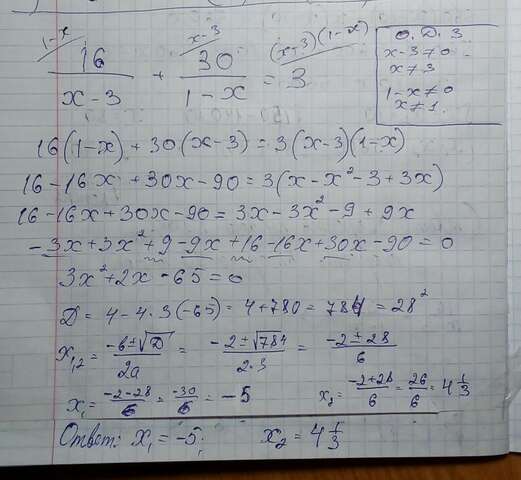 1-x x-3 (x-3)(1-x)
16/(x-3) + 30/(1-x) = 3
О. Д. З
x-3≠0
x≠3
1-x≠0
x≠1.
16(1-x)+30(x-3)=3(x-3)(1-x)
16-16x+30x-90=3(x-x²-3+3x)
16-16x+30x-90=3x-3x²-9+9x
-3x+3x²+9-9x+16-16x+30x-90=0
3x²+2x-65=0
D=4-4·3(-65)=4+780=784=28²
x₁,₂=(-б±√D)/2a = (-2±√784)/(2·3) = (-2±28)/6
x₁=(-2-28)/6=-30/6=-5 x₂=(-2+28)/6=26/6=4 1/3
Ответ: x₁=-5; x₂=4 1/3